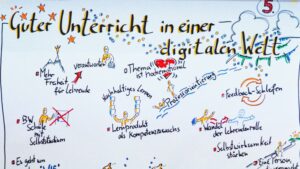 5
Guter Unterricht in einer
digitalen Welt
Mehr
Freiheit
für Lehrende
verantworten
Thema
ist
nachhaltiges Lernen
Lernprodukt
als Kompetenznachweis
Praxisorientierung
Feedback-Schleifen
Wandel
der Lehrendenrolle
Selbstwirksamkeit
stärken
Selbststudium
Es geht um
Eine Person